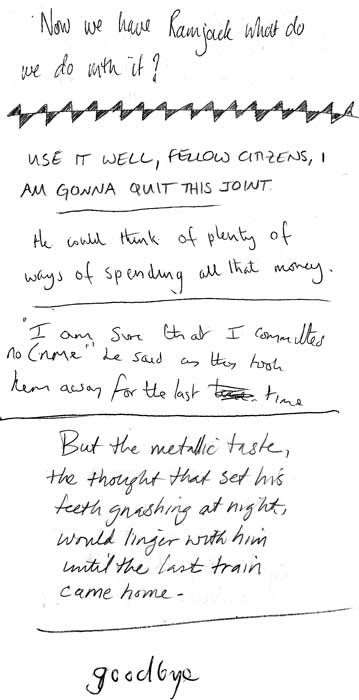 Now we have Ramjack what do
we do with it?
USE IT WELL, FELLOW CITIZENS, I
AM GONNA QUIT THIS JOINT.
He could think of plenty of
ways of spending all that money.
"I am sure that I committes
no Crime" he said as they took
him away for the last time
But the metallic taste,
the thought that set his
teeth gnashing at night,
would linger with him
until the last train
came home -
goodbye